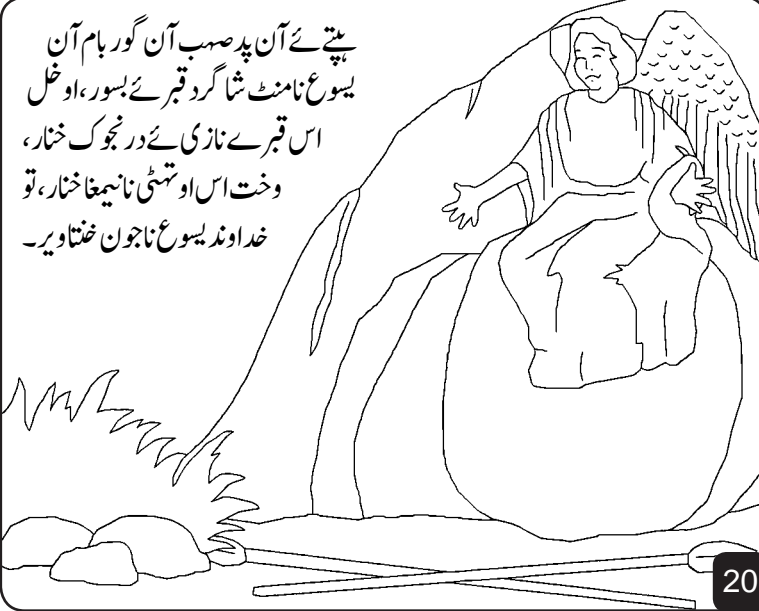 ہپتے ئے آن پد صہب آن گور بام آن
یسوع نا منٹ شاگرد قبر ئے بسور، او خل
اس قبر ے نازی ئے در نجوک خنار،
وخت اس او تہٹی نا نیمغا خنار، تو
خداوند یسوع نا جون خنتاویر۔
20